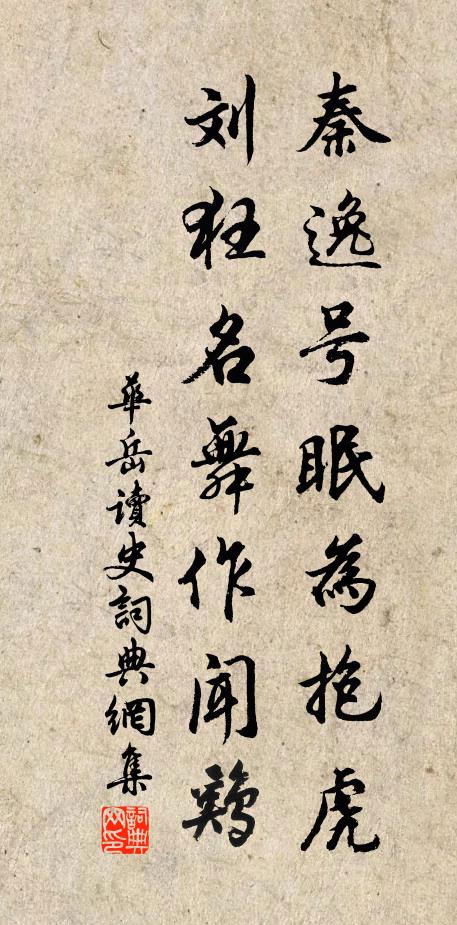 秦逸号眠为抱虎
刘狂名舞作闻鸡
華岳讀史詞典網集
詞典网印